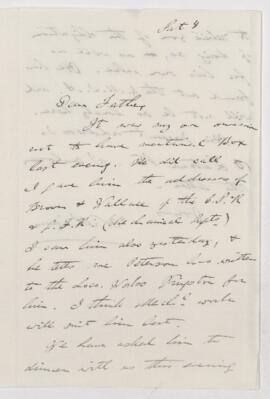 Oct 8
Dear Father
It was my own omission
not to have mentioned Box
last evening. He did call &
I gave him the addresses of
Brown & Wallace of the C.P.R
& G.T.R. (Mechanical Depts.)
I saw him also yesterday, &
he tells me Peterson has written
to the Loco. Works Kingston for
him. I think Mech'l works
will suit him best.
We have asked him to
dinner with us this evening